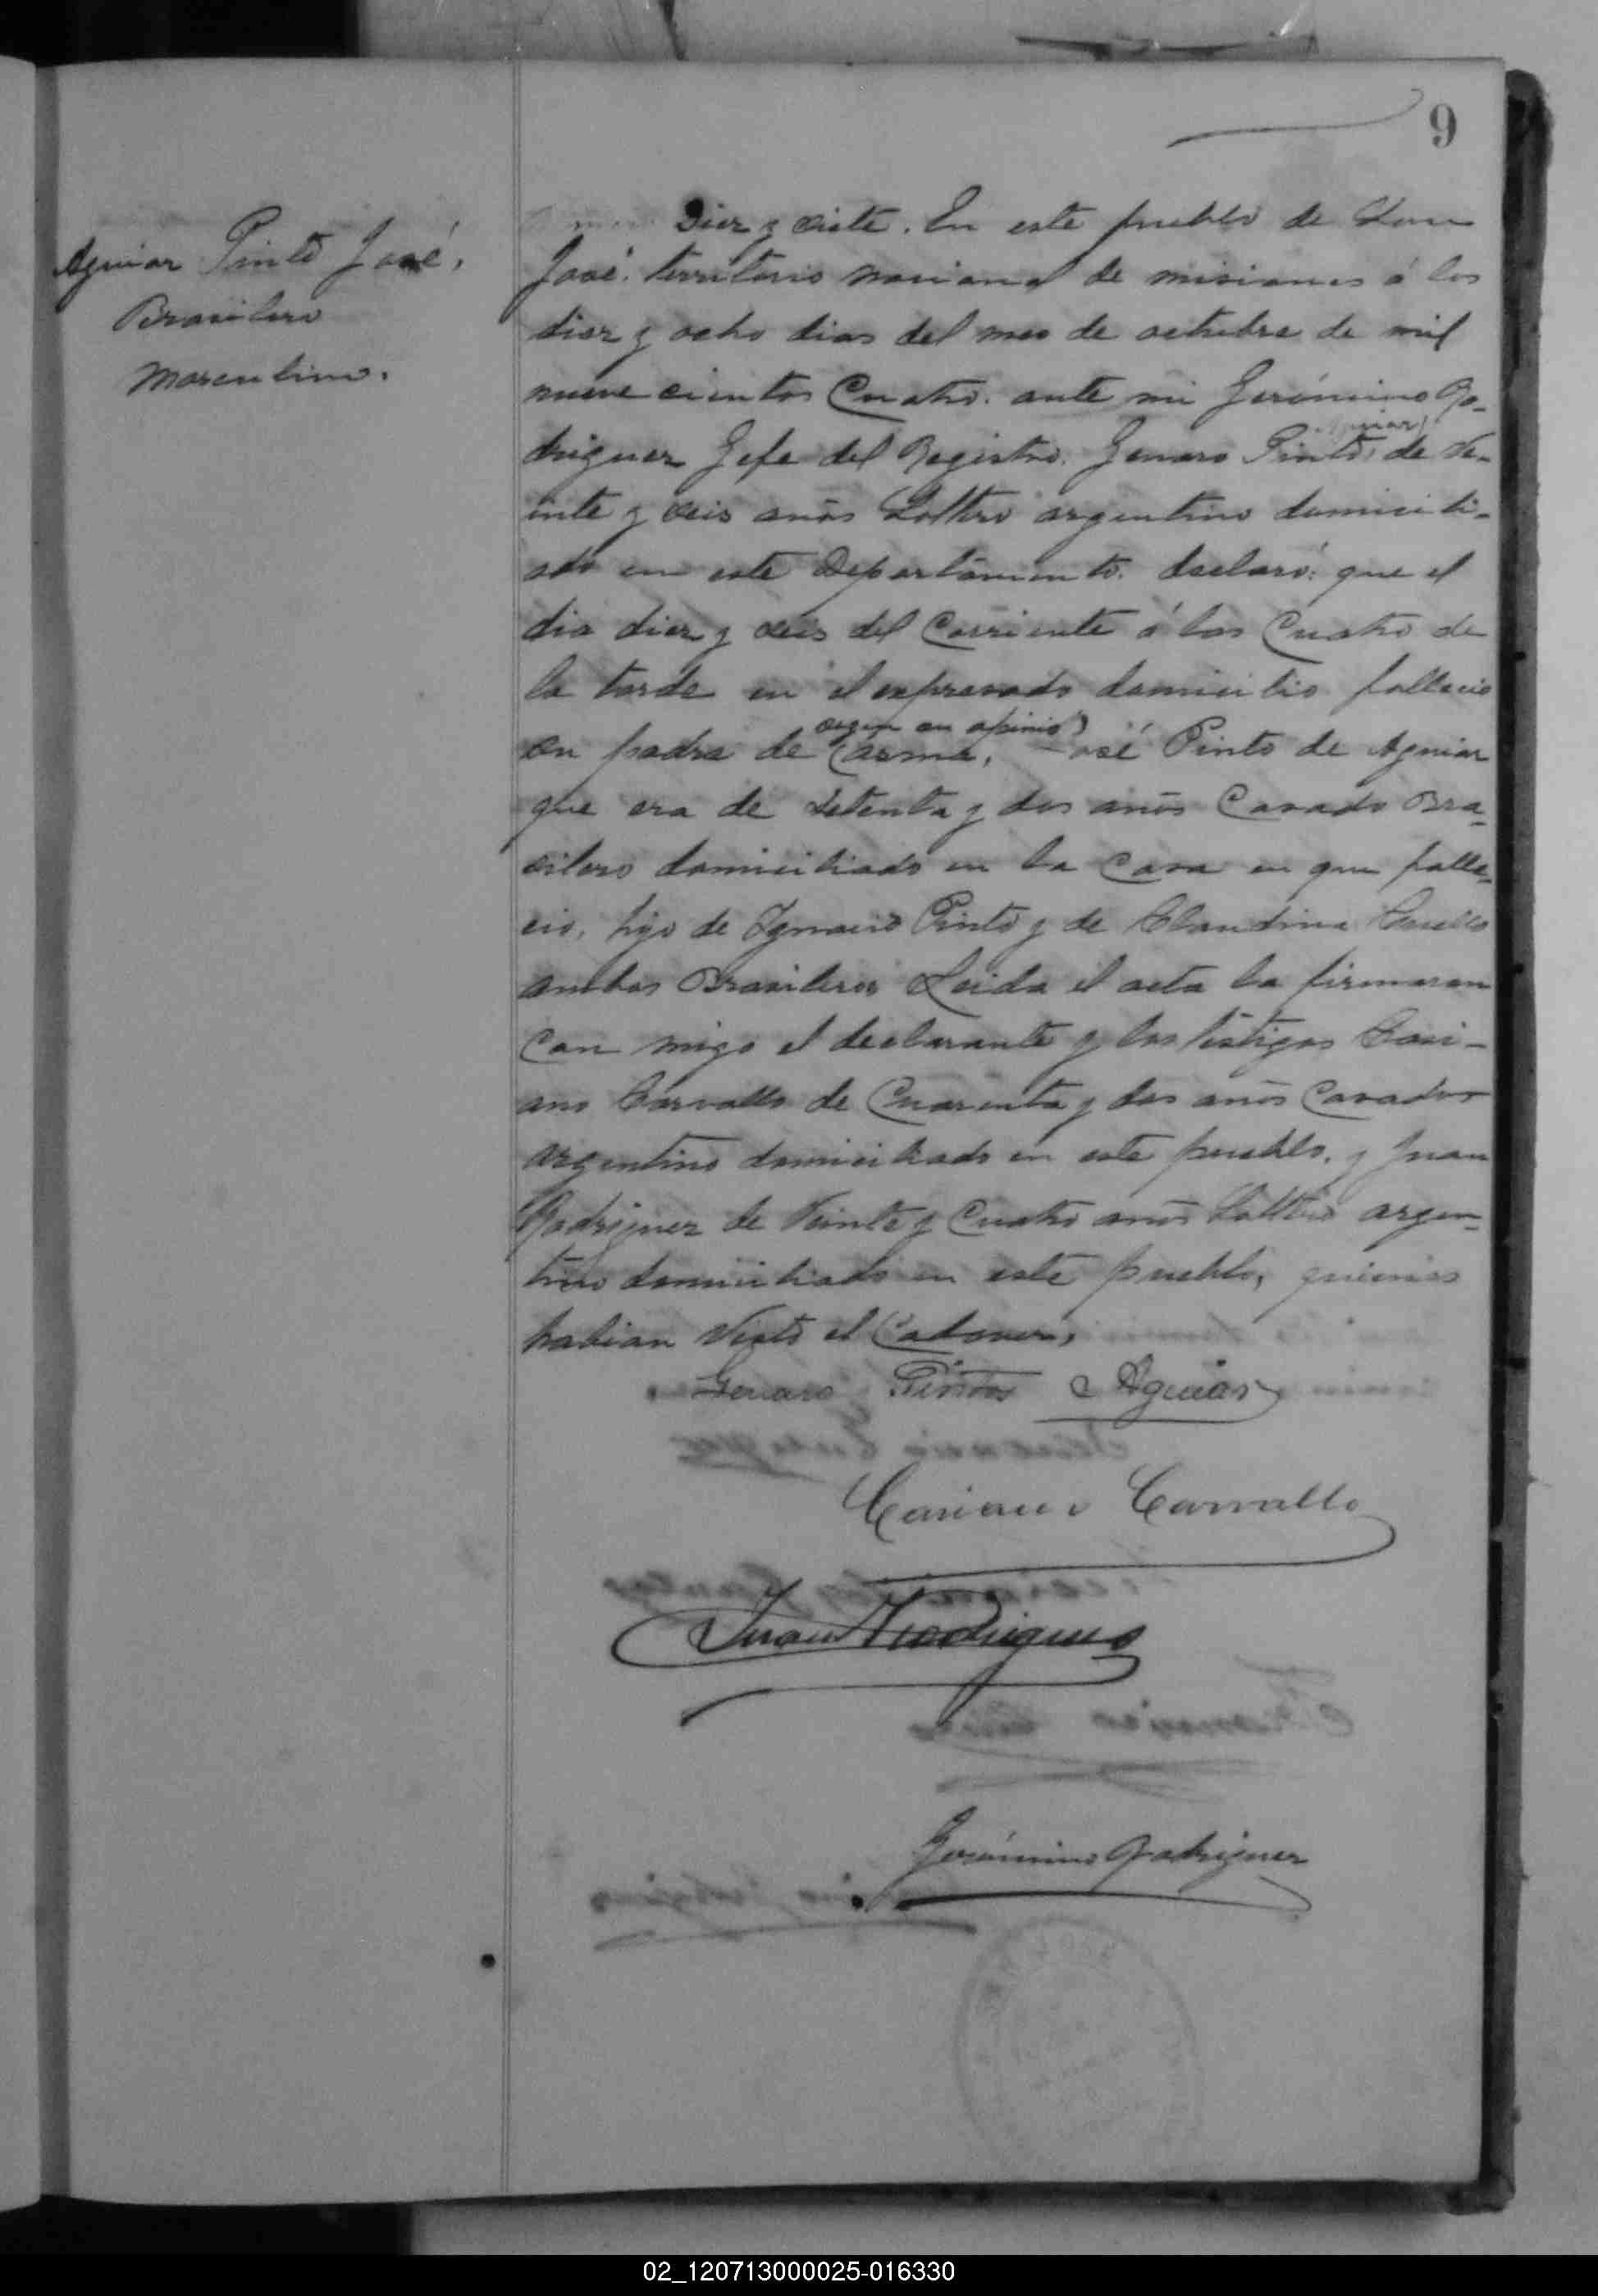 9
Aguiar Pinto José.
Brasilero
Masculino.
Diez y siete. En este pueblo de San
José. territorio nacional de misiones á los
diez y ocho dias del mes de octubre de mil
nueve cientos Cuatro. ante mi Gerónimo Ro-
driguez Gefe del Registro. Genaro Pinto de Ve-
inte y seis años Soltero argentino domicili-
ado en este Departamento. declaró: que el
dia diez y seis del Corriente á las Cuatro de
la tarde en el expresado domicilio fallecio
segun su opinio
su padre de asma, José Pinto de Aguiar
que era de Setenta y dos años Casado Bra-
silero domiciliado en la Casa en que falle-
cio, hijo de Ygnacio Pinto y de Claudina
ambos Brasileros Leida el acta la firmaron
Con migo el declarante y los testigos Casi-
ano Carvallo de Cuarenta y dos años Casado
argentino domiciliado en este pueblo. y Juan
Rodriguez de Veinte y Cuatro años Soltero argen-
tino domiciliado en este pueblo, quienes
habian Visto el Cadaver,
Genaro Pinto Aguiar
Casiano Carvallo
Juan Rodrigues
Gerónimo Rodriguez
02_120713000025-016330